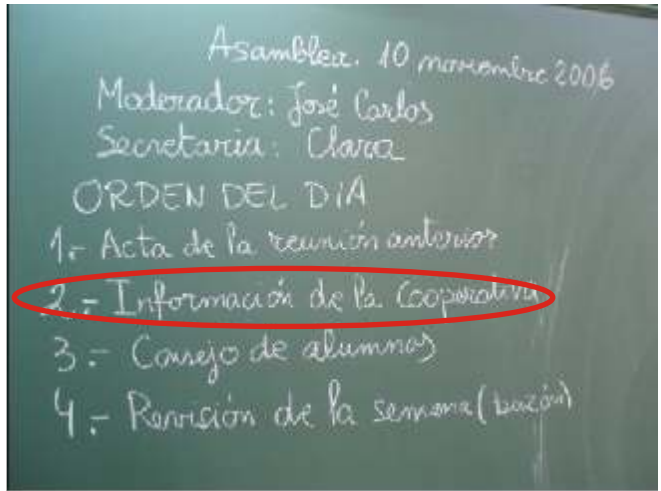 Asamblea. 10 noviembre 2006
Moderador: José Carlos
Secretaria: Clara
ORDEN DEL DIA
1.- Acta de la reunión anterior
2.- Información de la Cooperativa
3.- Consejo de alumnos
4.- Revisión de la semana (buzón)